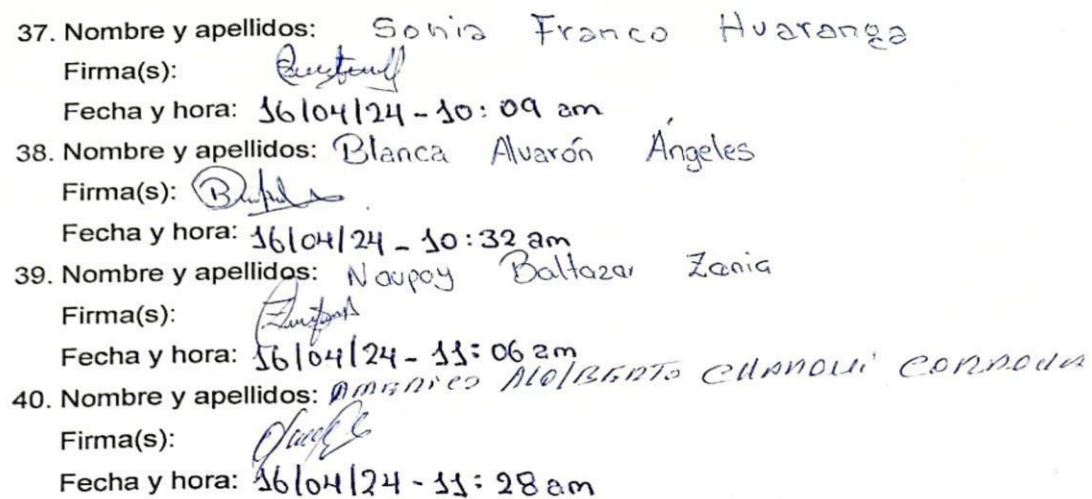 37. Nombre y apellidos: Sonia Franco Huaranga
Firma(s):
Fecha y hora: 16/04/24 - 10:09 am
38. Nombre y apellidos: Blanca Alvarón Ángeles
Firma(s):
Fecha y hora: 16/04/24 - 10:32 am
39. Nombre y apellidos: Naupay Baltazar Zenia
Firma(s):
Fecha y hora: 16/04/24 - 11:06 am
40. Nombre y apellidos:
Firma(s):
Fecha y hora: 16/04/24 - 11:28 am